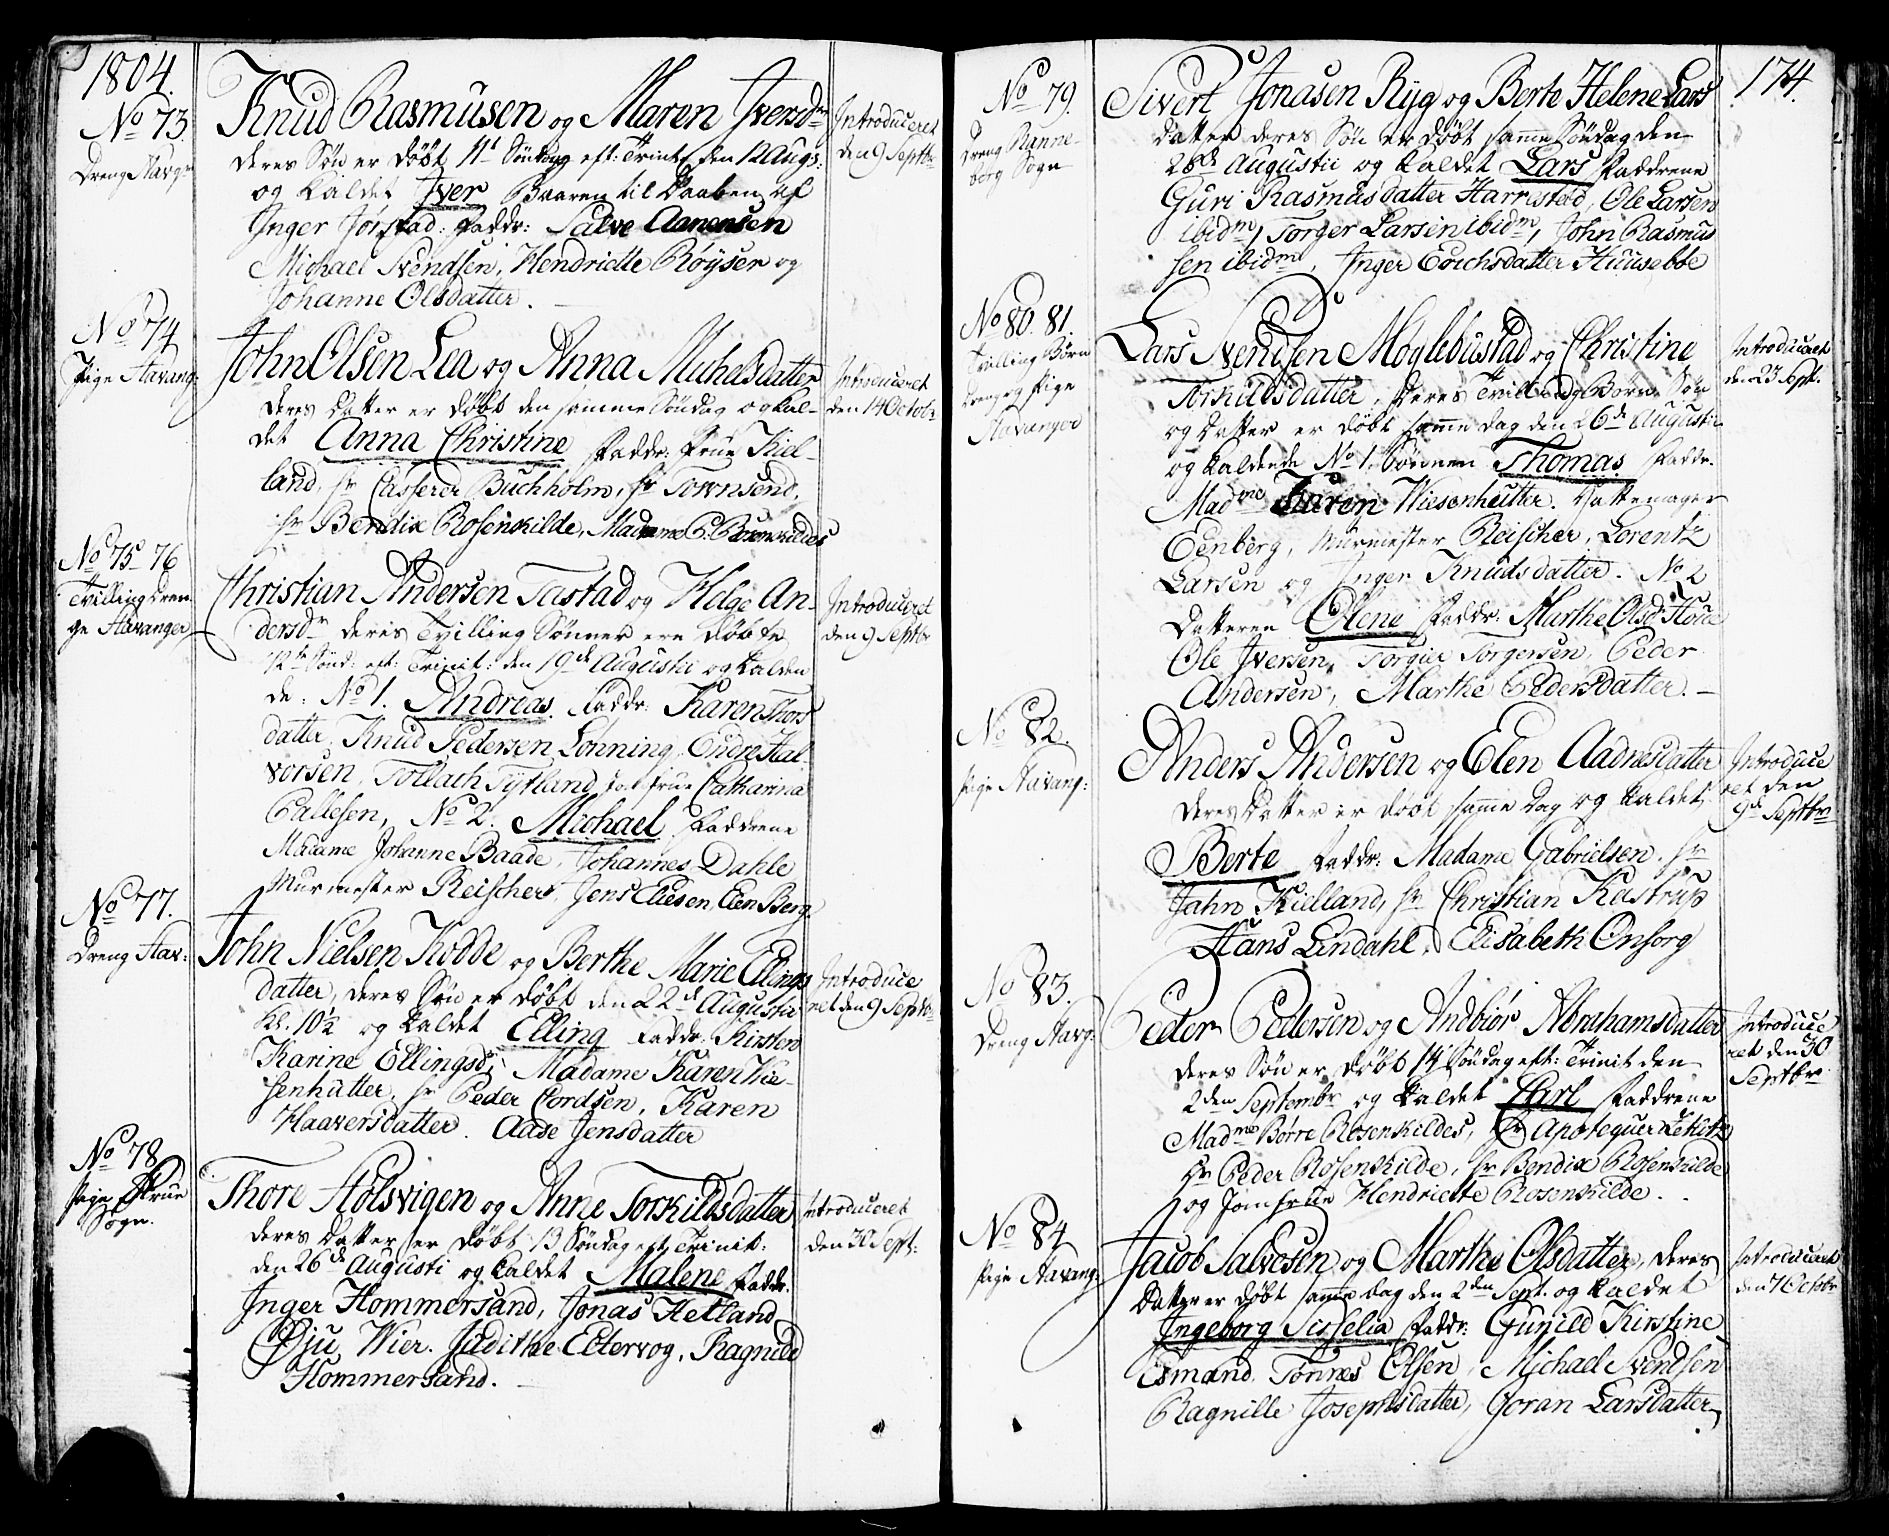 1804.
No 73.
Dreng Stavgr
Knud Rasmusen og Maren Iversdr
deres Søn er døbt 11t Søndag eft: Trint. den 12 Augs:
og kaldet Iver Baaren til Daaben af
Inger Jørstad: Faddr: Salve Aanensen
Michael Svendsen, Hendriette Røyser og
Johanne Olsdatter.
Introduceret
den 9 Septbr
No 74
Pige Stavang:
John Olsen Lea og Anna Michelsdatter
deres Datter er døbt den samme Søndag og kal-
det Anna Christine Faddr: Frue Kiel-
land, hr Casserer Buchholm, hr Townsend,
hr Bendix Rosenkilde, Madame P. Rosenkildes
Introduceret
den 14 Octobr
No 75 - 76
Tvilling Dren-
ge Stavanger
Christian Andersen Tastad og Helge An-
dersdr deres Tvilling Sønner ere døbte
12te Sønd: eft: Trinit: den 19de Augustii og kalden
de: No 1. Andreas. Faddr: Karen Thors
datter, Knud Pedersen Lønning, Endre Hal-
vorsen, Tollach Tytland, Frue Catharina
Pallesen, No 2. Michael Faddrene
Madame Johanne Baade, Johannes Dahle
Murmester Reischer, Jens Eliesen, Elen Berg.
Introduceret
den 9 Septbr
No 77.
Dreng Stav:
John Nielsen Kodde og Berthe Marie Ellings
datter, deres Søn er døbt den 22de Augustii
Kl. 10½ og kaldet Elling Faddr: Kirsten
Karine Ellingsdr, Madame Karen Wie-
senhutter, hr Peder Cordsen, Karen
Haaversdatter. Aase Jensdatter
Introduce
ret den 9 Septbr
No 78
Pige Frue
Sogn.
Thore Holsvigen og Anne Torkildsdatter
deres Datter er døbt 13 Søndag eft Trinit:
den 26de Augusti og kaldet Malene Faddr.
Inger Hommersand, Jonas Hetland,
Siju Wier. Judithe Eltervog, Ragnild
Hommersand.
Introduceret
den 30 Sept:
174.
No 79.
Dreng Ranne-
berg Sogn
Sivert Jonasen Ryg og Berte Helene Lars
datter deres Søn er døbt samme Søndag den
26de Augustii og kaldet Lars Faddrene
Guri Rasmusdatter Harristad, Ole Larsen
ibidm, Torger Larsen ibidm, John Rasmus
sen ibidm, Inger Erichsdatter Huusebøe
No 80. 81.
Tvilling Børn
Dreng og Pige
Stavanger
Lars Svendsen Møglebustad og Christine
Torkildsdatter, deres Tvilling Børn, Søn
og Datter er døbt samme dag den 26de Augusti
og kaldende No 1. Sønnen Thomas. Faddr.
Madme Karen Wiesenhutter.
Eenberg, Murmester Reischer, Lorentz
Larsen og Inger Knudsdatter. No 2
Datteren Olene Faddr: Marthe Olsdr Houe
Ole Iversen, Torgier Torgersen, Peder
Andersen, Marthe Pedersdatter. —
Introduceret
den 23 Sept.
No 82.
Pige Stavang:
Anders Andersen og Elen Aadnesdatter
deres Datter er døbt samme Dag og kaldet
Berte Faddr: Madame Gabrielsen, hr
Jahn Kielland, hr Christian Kastrup
Hans Lindahl, Elisabeth Onsorg
Introduce
ret den
9de Septbr
No 83.
Dreng Stavg:
Peder Pedersen og Andbiør Abrahamsdatter
deres Søn er døbt 14 Søndag eft: Trinit den
2den Septembr og kaldet Carl Faddrene
Madme Børre Rosenkildes, hr Apotequer Zetlitz
hr Peder Rosenkilde, hr Bendix Rosenkilde
og Jomfrue Hendriette Rosenkilde.
Introduce
ret den 30
Septbr
No 84
Pige Stavang:
Jacob Salvesen og Marthe Olsdatter, deres
Datter er døbt samme dag den 2den Sept. og kaldet
Ingeborg Sisselia Faddr: Gunild Kirstine
Osmand. Tønnes Olsen, Michael Svendsen
Ragnille Josephsdatter, Goran Larsdatter,
Introduceret
den 7 Octbr